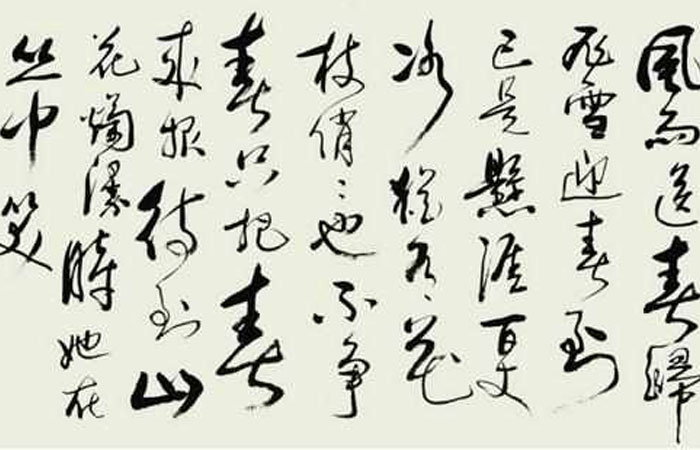 風雨送春歸
飛雪迎春到
已是懸涯百丈
冰猶有花
枝俏〻也不争
春只把春
来报待到山
花爛漫時她在
丛中笑